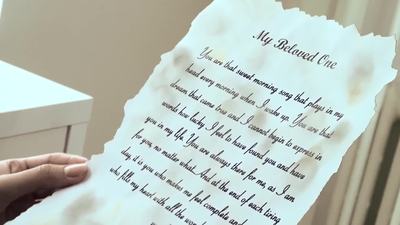 My Beloved One
You are that sweet morning song that plays in my
head every morning when I wake up. You are that
dream that came true and I cannot begin to express in
words how lucky I feel to have found you and have
you in my life. You are always there for me, as I am
for you, no matter what. And at the end of each tiring
day, it is you who makes me feel complete and
who fills my heart with all the